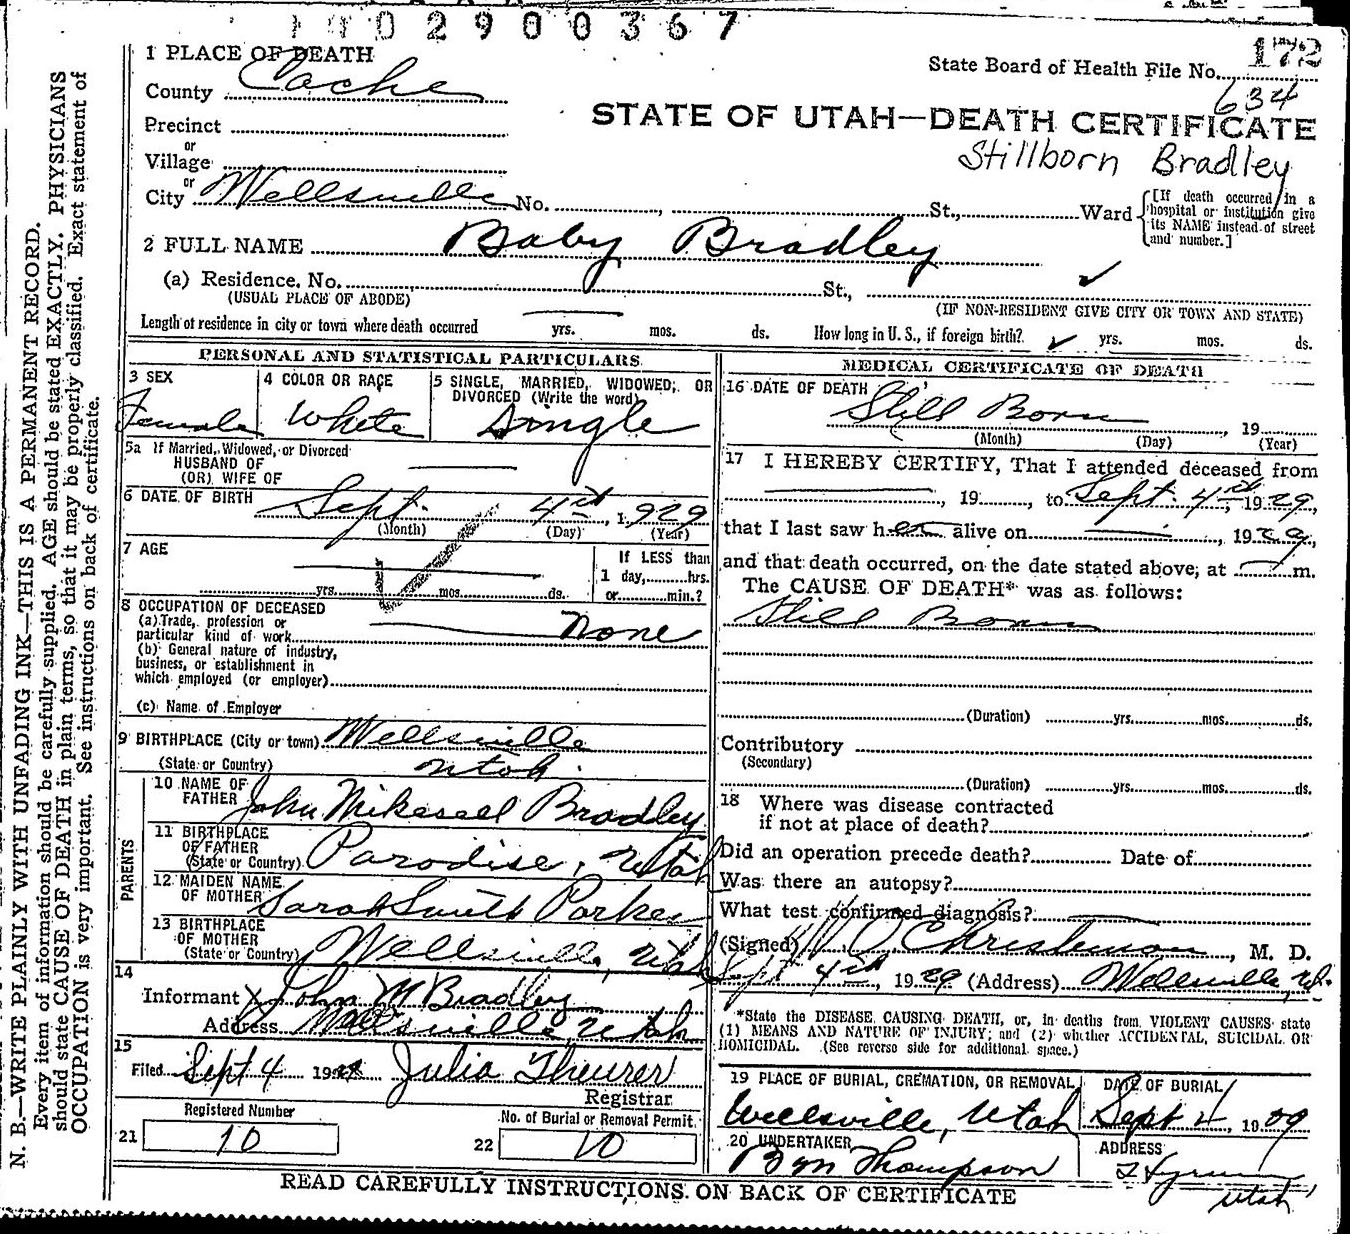 2900367
172
1 PLACE OF DEATH
State Board of Health File No.
634
County Cache
STATE OF UTAH—DEATH CERTIFICATE
Precinct
Stillborn Bradley
or
Village
or
City Wellsville No. , St., Ward [If death occurred in a hospital or institution give its NAME instead of street and number.]
2 FULL NAME Baby Bradley
(a) Residence. No. St.,
(USUAL PLACE OF ABODE) (IF NON-RESIDENT GIVE CITY OR TOWN AND STATE)
Length of residence in city or town where death occurred yrs. mos. ds. How long in U. S., if foreign birth? ✓ yrs. mos. ds.
PERSONAL AND STATISTICAL PARTICULARS
3 SEX 4 COLOR OR RACE 5 SINGLE, MARRIED, WIDOWED, OR DIVORCED (Write the word)
Female White Single
5a If Married, Widowed, or Divorced
HUSBAND OF
(OR) WIFE OF
6 DATE OF BIRTH Sept. 4th, 1929
(Month) (Day) (Year)
7 AGE
If LESS than
1 day, hrs.
yrs. mos. ds. or min.?
8 OCCUPATION OF DECEASED
(a) Trade, profession or
particular kind of work None
(b) General nature of industry,
business, or establishment in
which employed (or employer)
(c) Name of Employer
9 BIRTHPLACE (City or town) Wellsville
(State or Country) Utah.
PARENTS
10 NAME OF FATHER John Mikesell Bradley
11 BIRTHPLACE OF FATHER (State or Country) Paradise, Utah
12 MAIDEN NAME OF MOTHER Sarah Smith Parker
13 BIRTHPLACE OF MOTHER (State or Country) Wellsville, Utah
14
Informant X John M Bradley
Address Wellsville, Utah
15
Filed Sept 4 19 Julia Theurer
Registrar
Registered Number No. of Burial or Removal Permit
21 10 22 10
MEDICAL CERTIFICATE OF DEATH
16 DATE OF DEATH
Still Born , 19
(Month) (Day) (Year)
17 I HEREBY CERTIFY, That I attended deceased from
, 19 , to Sept. 4th, 1929,
that I last saw her alive on , 1929,
and that death occurred, on the date stated above, at m.
The CAUSE OF DEATH* was as follows:
Still Born
(Duration) yrs. mos. ds.
Contributory
(Secondary)
(Duration) yrs. mos. ds.
18 Where was disease contracted
if not at place of death?
Did an operation precede death? Date of
Was there an autopsy?
What test confirmed diagnosis?
(Signed) Christenson, M. D.
Sept 4th, 1929 (Address) Wellsville, U.
*State the DISEASE CAUSING DEATH, or, in deaths from VIOLENT CAUSES state
(1) MEANS AND NATURE OF INJURY; and (2) whether ACCIDENTAL, SUICIDAL OR
HOMICIDAL. (See reverse side for additional space.)
19 PLACE OF BURIAL, CREMATION, OR REMOVAL DATE OF BURIAL
Wellsville, Utah Sept 4, 19
20 UNDERTAKER ADDRESS
Thompson Hyrum
Utah
READ CAREFULLY INSTRUCTIONS ON BACK OF CERTIFICATE
N. B.—WRITE PLAINLY WITH UNFADING INK—THIS IS A PERMANENT RECORD.
Every item of information should be carefully supplied. AGE should be stated EXACTLY. PHYSICIANS
should state CAUSE OF DEATH in plain terms, so that it may be properly classified. Exact statement of
OCCUPATION is very important. See instructions on back of certificate.